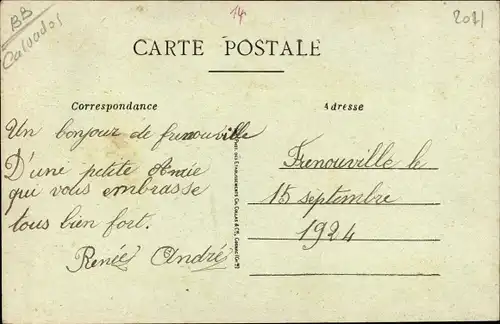 BB
Calvados
14
2071
CARTE POSTALE
Correspondance
Adresse
Un bonjour de frenouville
D'une petite Amie
qui vous embrasse
tous bien fort.
Renée André
Frenouville le
15 septembre
1924